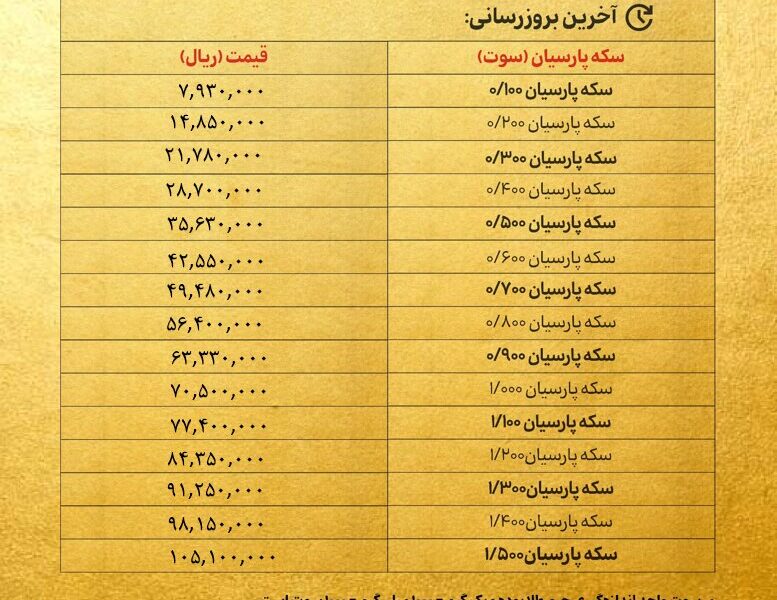 آخرین بروزرسانی:
سکه پارسیان (سوت) قیمت (ریال)
سکه پارسیان ۰/۱۰۰ ۷,۹۳۰,۰۰۰
سکه پارسیان ۰/۲۰۰ ۱۴,۸۵۰,۰۰۰
سکه پارسیان ۰/۳۰۰ ۲۱,۷۸۰,۰۰۰
سکه پارسیان ۰/۴۰۰ ۲۸,۷۰۰,۰۰۰
سکه پارسیان ۰/۵۰۰ ۳۵,۶۳۰,۰۰۰
سکه پارسیان ۰/۶۰۰ ۴۲,۵۵۰,۰۰۰
سکه پارسیان ۰/۷۰۰ ۴۹,۴۸۰,۰۰۰
سکه پارسیان ۰/۸۰۰ ۵۶,۴۰۰,۰۰۰
سکه پارسیان ۰/۹۰۰ ۶۳,۳۳۰,۰۰۰
سکه پارسیان ۱/۰۰۰ ۷۰,۵۰۰,۰۰۰
سکه پارسیان ۱/۱۰۰ ۷۷,۴۰۰,۰۰۰
سکه پارسیان۱/۲۰۰ ۸۴,۳۵۰,۰۰۰
سکه پارسیان۱/۳۰۰ ۹۱,۲۵۰,۰۰۰
سکه پارسیان۱/۴۰۰ ۹۸,۱۵۰,۰۰۰
سکه پارسیان۱/۵۰۰ ۱۰۵,۱۰۰,۰۰۰